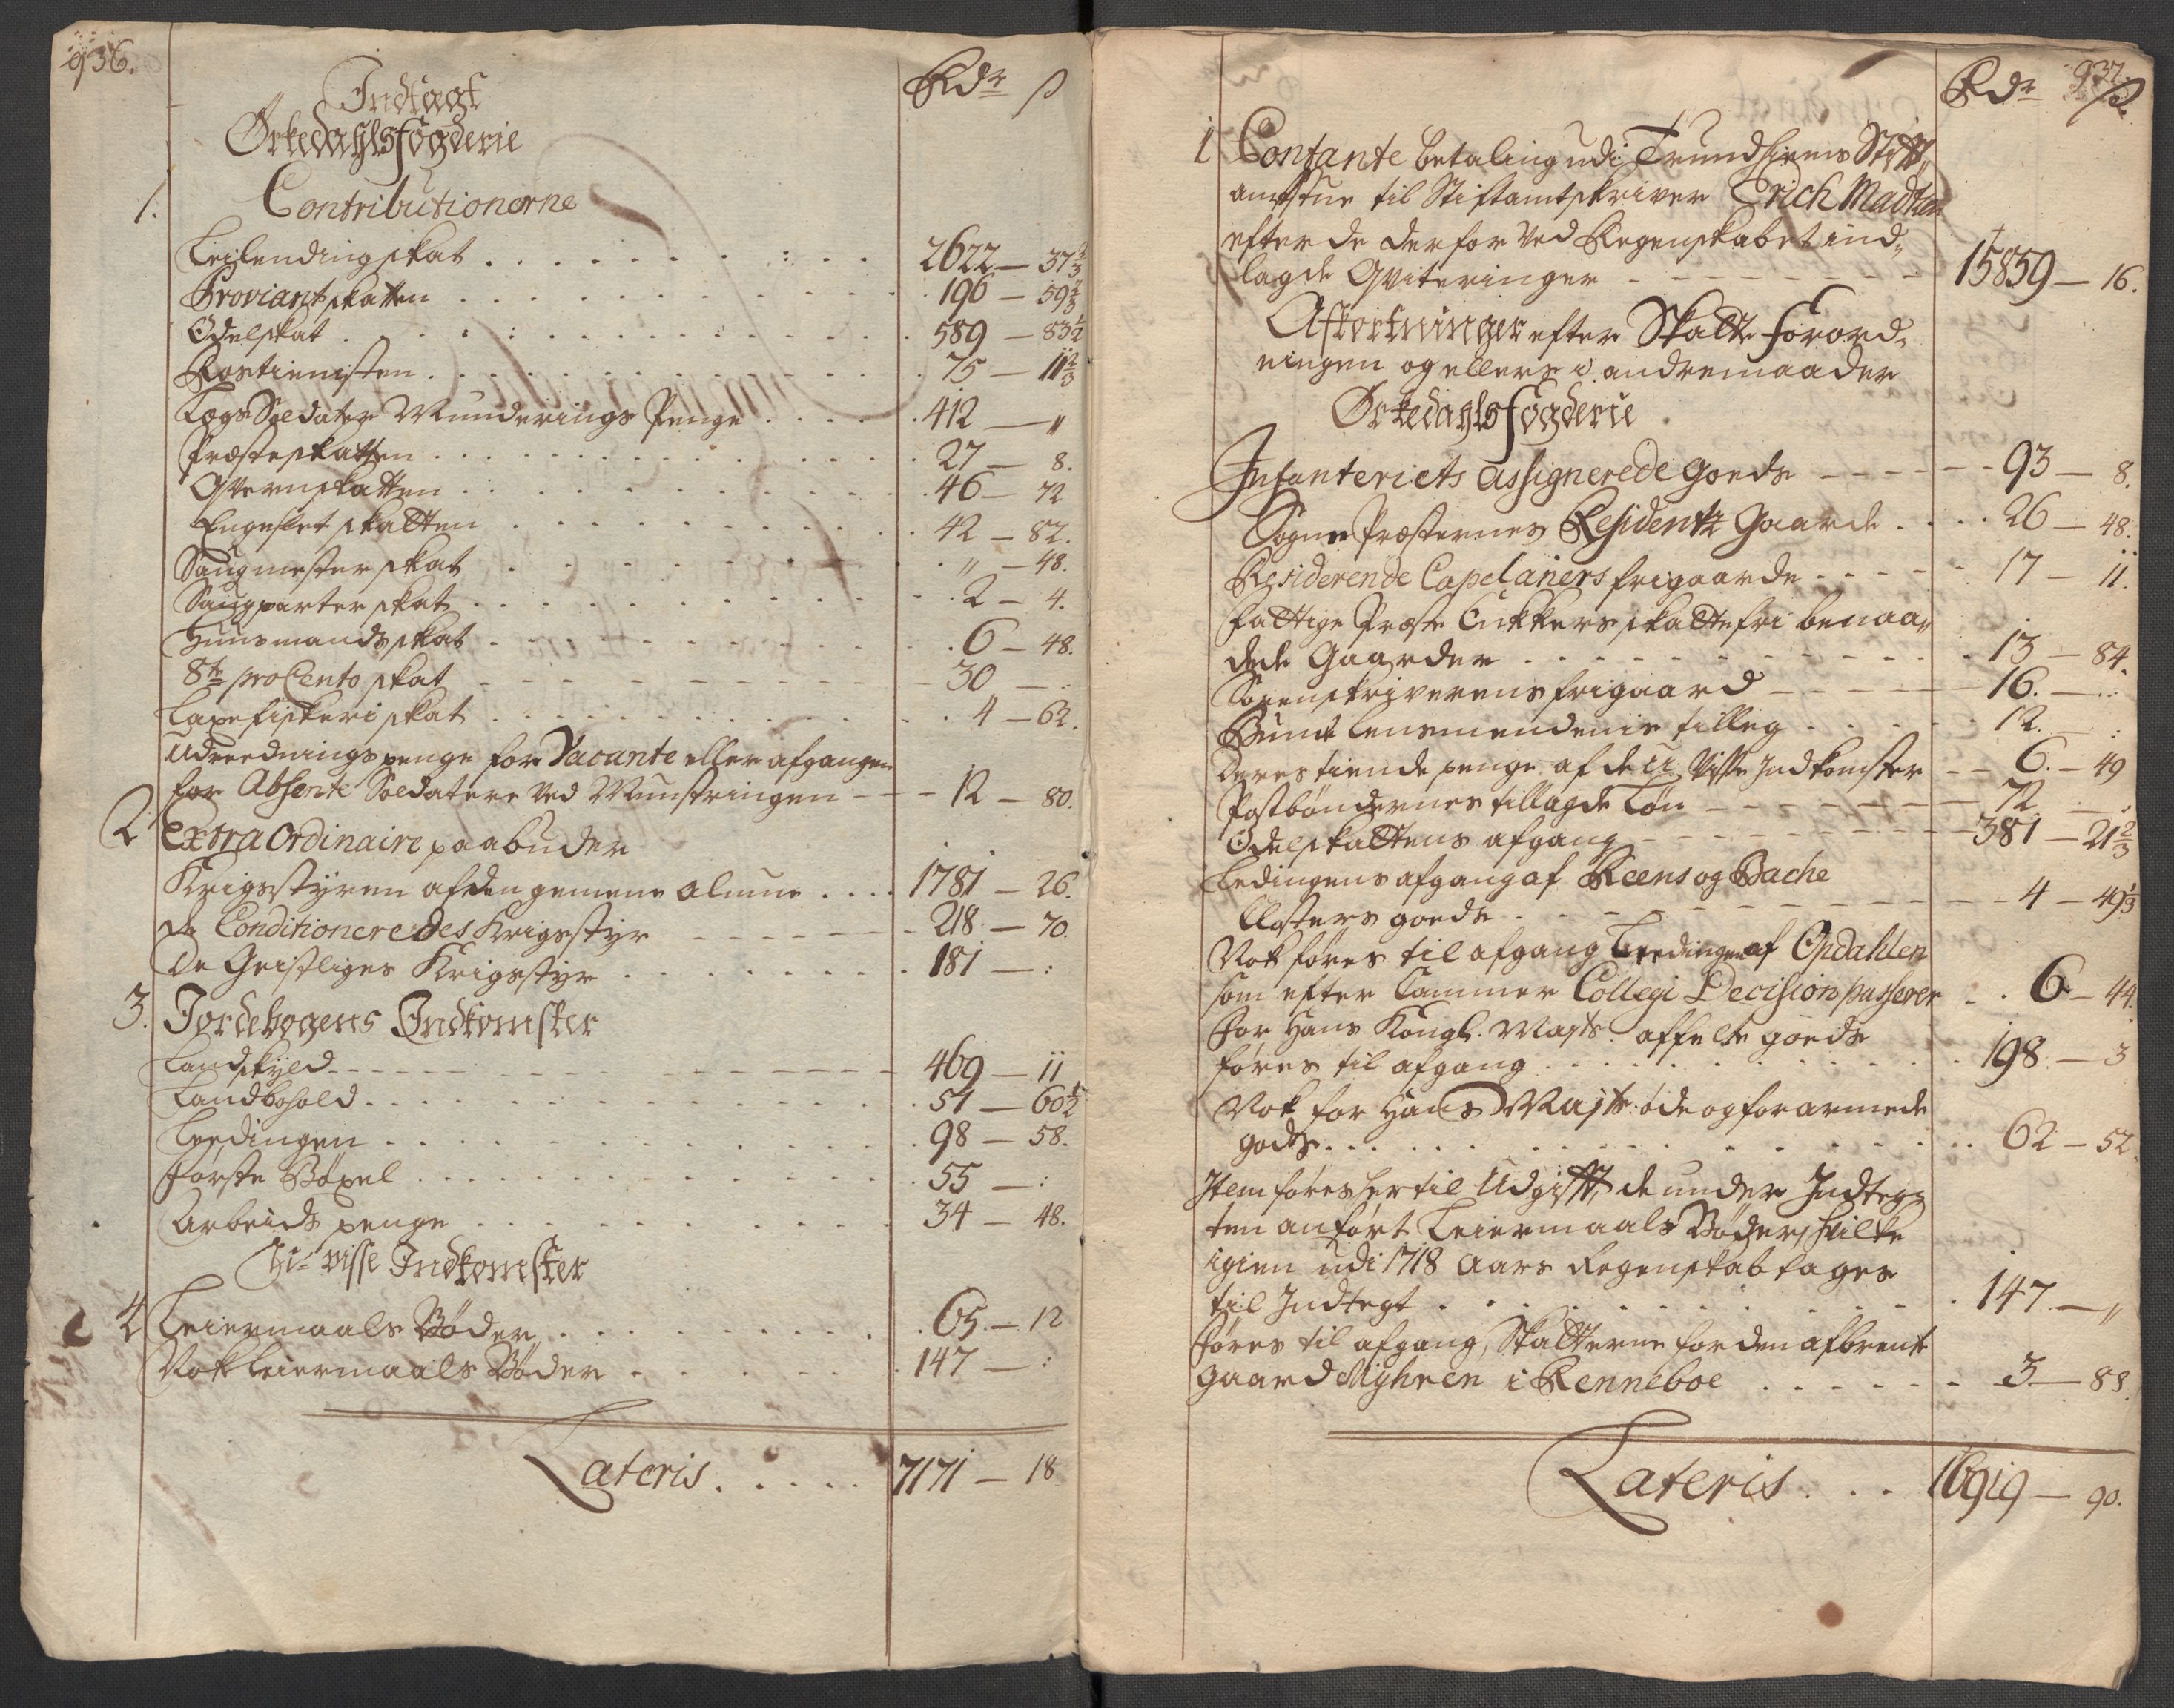 936.
Rdr ß
Indtægt
Ørkedahls fogderie
1. Contributionerne
Leilendingskat . . . . . . . . . 2622 — 37 1/3
Proviantskatten . . . . . . . . . 196 — 59 2/3
Odelskat . . . . . . . . . 589 — 83 1/2
Rostienisten . . . . . . . . . 75 — 11 2/3
Legs Soldater Munderings Penge . . . . 412 — "
Præsteskatten . . . . . . . . . 27 — 8.
Qvernskatten . . . . . . . . . 46 — 72
Engeslet skatten . . . . . . . . . 42 — 82.
Saugmesterskat . . . . . . . . . " — 48.
Saugparterskat . . . . . . . . . 2 — 4.
Huusmandsskat . . . . . . . . . 6 — 48.
8te pro Cento skat . . . . . . . . . 30 — :
Laxefiskeriskat . . . . . . . . . 4 — 62.
Udreednings penge for Vacante eller afgangen
for Absente Soldatere ved Munstringen — 12 — 80.
2 Extra Ordinaire paabuder
Krigsstyren af den gemene almue . . . . 1781 — 26.
de Conditioneredes Krigsstyr — — — 218 — 70.
De Geistliges Krigsstyr . . . . . . . 181 — :
3. Jordebogens Indkomster
Landskyld — — — — — — 469 — 11
Landbohold . . . . . . . . . 51 — 60 1/2
Leedingen . . . . . . . . . 98 — 58.
Første Bøxel . . . . . . . . . 55 — :
Arbeids penge . . . . . . . . . 34 — 48.
U- visse Indkomster
4 Leiermaals Bøder . . . . . . . . . 65 — 12
Nok Leiermaals Bøder . . . . . . . . . 147 — :
Lateris . . . . . 7171 — 18
937.
Rdr ß.
1 Contante betaling udi Trundhiems Stift
amtstue til Stiftamtskriver Erich Madtzen
efter de derfor ved Regenskabet ind„
lagde Qviteringer — — — — 15859 — 16.
Afkortninger efter Skatte forord„
ningen og ellers i andre maader
Ørkedahls fogderie
Infanteriets assignerede goeds — — — 93 — 8.
Sogne Præsternes Residentz Gaarde . . . . 26 — 48.
Residerende Capelaners frigaarde . . . . 17 — 11.
Fattige Præste Enkkers skattefri benaa„
dede Gaarder . . . . . . . . . 13 — 84.
Sorenskriverens frigaard — — — — 16. — :
Bunde lensmendenis tilleg . . . . . 12. — :
Deres tiende penge af de U Visse Indkomster — 6. — 49
Postbøndernes tillagde Løn — — — — 72 — .
Odelskattens afgang — — — — 381 — 21 2/3
Ledingens afgang af Reens og Bache
Closters goeds . . . . . . . . . 4 — 49 1/3
Nok føres til afgang Leedingen af Opdahlen
som efter Cammer Collegi Decision passerer . . 6 — 44.
For Hans Kongl. Majts. affelte goeds
føres til afgang . . . . . . . . . 198 — 3
Nok for Hans Majts. øde og forarmede
gods . . . . . . . . . 62 — 52.
Item føres her til Udgift, de under Indteg„
ten anført Leiermaals Bøder, hvilke
igien udi 1718 Aars Regenskab tages
til Indtegt . . . . . . . . . 147 — "
Føres til afgang, Skatterne for den afbrente
gaard Myhren i Renneboe . . . . . . 3 — 88.
Lateris . . . 16919 — 90.